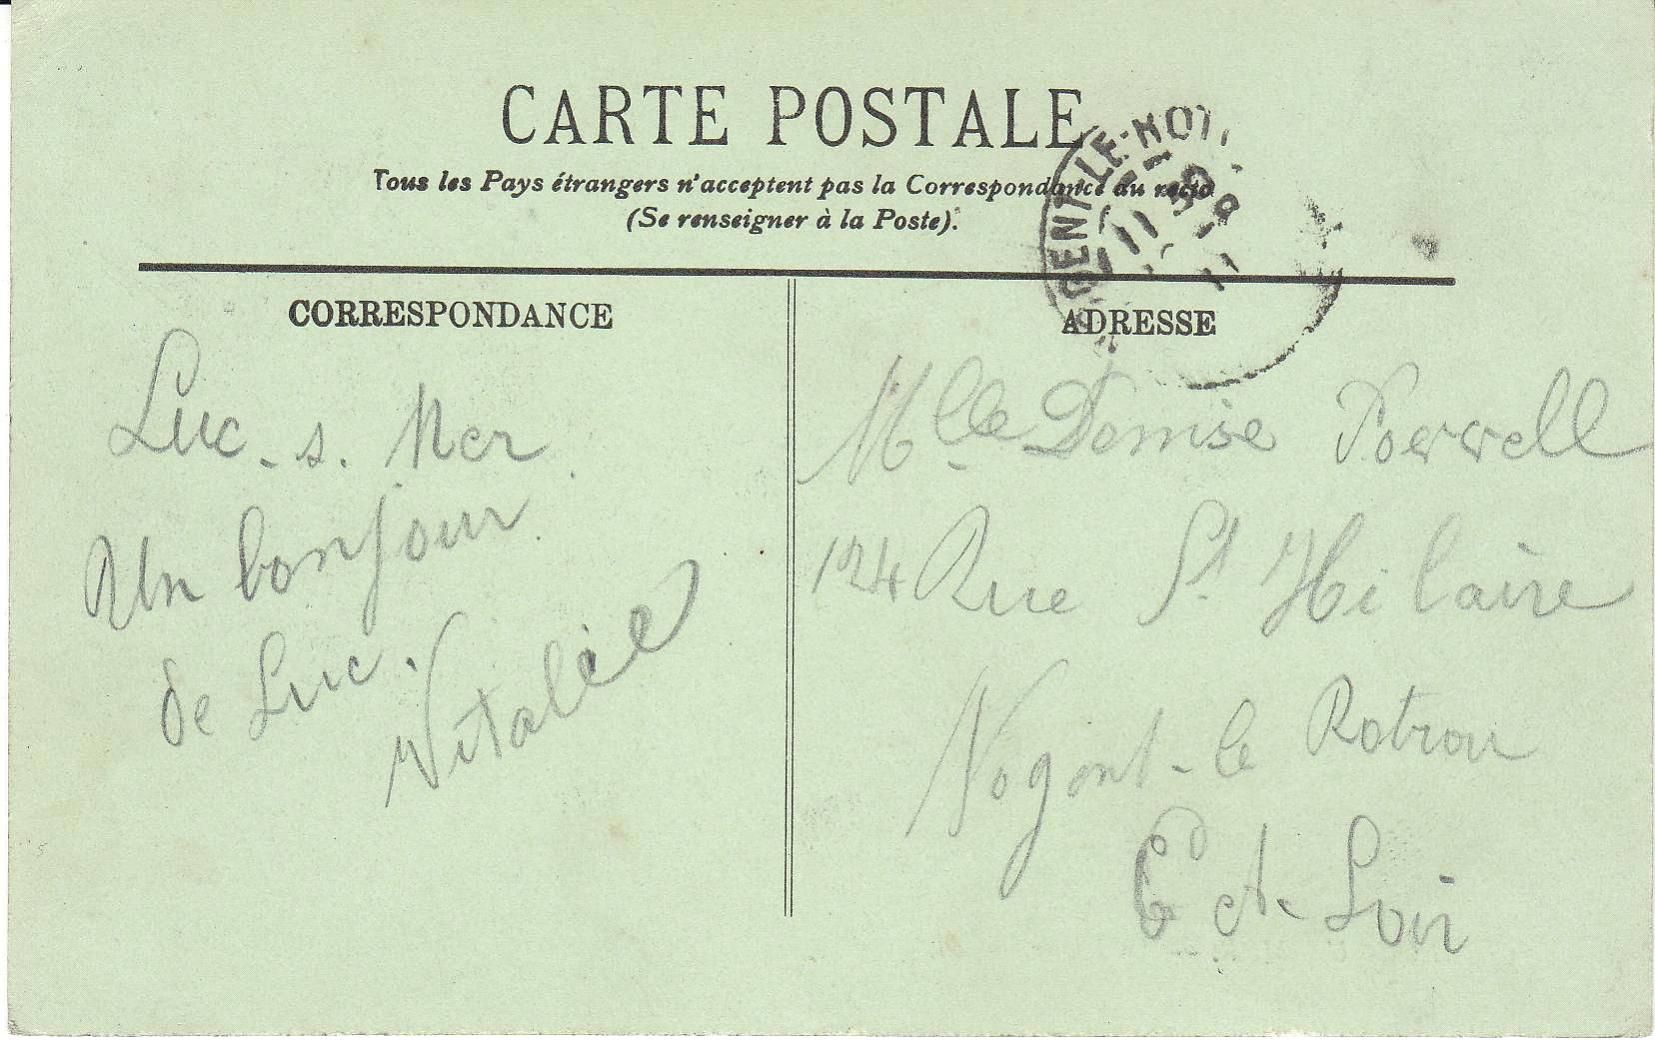 CARTE POSTALE
Tous les Pays étrangers n'acceptent pas la Correspondance au recto
(Se renseigner à la Poste).
CORRESPONDANCE
Luc-s. Mer
Un bonjour
de Luc.
Vitalie
ADRESSE
Mlle Denise
124 Rue St Hilaire
Nogent-le Rotrou
E et-Loir
11 30